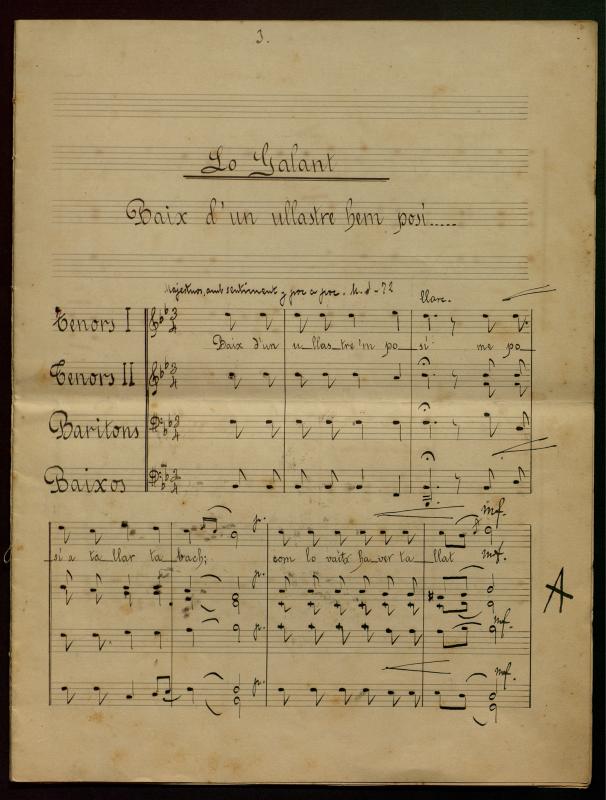 3.
Lo Galant
Baix d'un ullastre hem posí.....
Majestuos, amb sentiment y poc a poc. M. ♩ = 72
llarc.
Tenors I
Baix d'un u llas tre 'm po sí me po
Tenors II
Baritons
Baixos
p. mf.
sí a ta llar ta bach; com lo vaitx ha ver ta llat mf.
p.
A
p. mf.
p. mf.